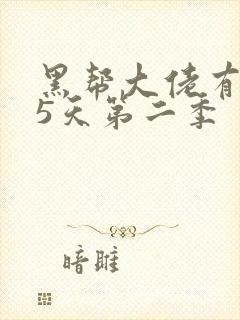 黑帮大佬有
5天第二季
暗雎